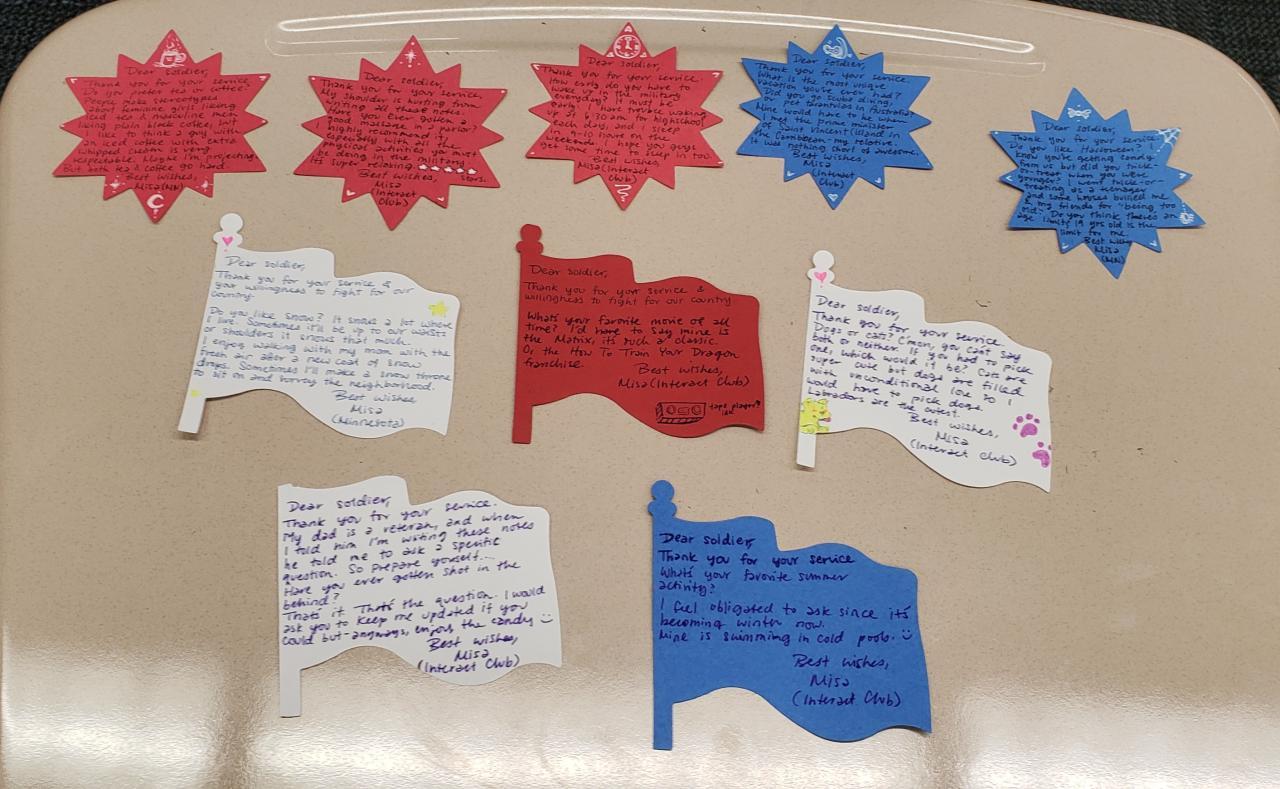 Dear soldier,
Thank you for your service.
Do you prefer tea or coffee?
People make stereotypes
about feminine girls liking
iced tea & masculine men
liking plain black coffee, but
I like to think a guy with
an iced coffee with extra
whipped cream is very
respectable. Maybe I'm projecting.
But both tea & coffee go hard.
Best wishes,
Misa (MN)
Dear soldier,
Thank you for your service.
My shoulder is hurting from
writing all these notes.
Have you ever gotten a
good massage in a parlor?
I highly recommend it,
especially with all the
physical activities you must
be doing in the military
It's super relaxing.
stars.
Best wishes,
Misa
(Interact
Club)
Dear soldier,
Thank you for your service.
How early do you have to
wake up in the military
everyday? It must be
early. I have trouble waking
up at 6:30am for highschool
each day, and I sleep
in 9-10 hours on the
weekends. I hope you guys
get some time to sleep in too.
Best wishes,
Misa (Interact
Club)
Dear soldier,
Thank you for your service.
What is the most unique
vacation you've ever had?
Did you go scuba diving,
or pet tarantulas in Australia?
Mine would have to be when
I met the prime minister
of Saint Vincent (island in
the Carribean - my relative.
It was nothing short of awesome.
Best wishes,
Misa
(Interact
Club)
Dear soldier,
Thank you for your service.
Do you like Halloween? I
know you're getting candy
from us but did you trick-
or-treat when you were
younger? I went trick-or-
treating as a teenager
and some houses bullied me
& my friends for "being too
old." Do you think there's an
age limit? 19 yrs old is the
limit for me.
Best wishes
Misa
(MN)
Dear soldier,
Thank you for your service &
your willingness to fight for our
country.
Do you like snow? It snows a lot where
I live. Sometimes it'll be up to our waists
or shoulders it snows that much.
I enjoy walking with my mom with the
fresh air after a new coat of snow
drops. Sometimes I'll make a snow throne
to sit on and survey the neighborhood.
Best wishes
Misa
(Minnesota)
Dear soldier,
Thank you for your service &
willingness to fight for our country
What's your favorite movie of all
time? I'd have to say mine is
the Matrix, it's such a classic.
Or the How To Train Your Dragon
franchise.
Best wishes,
Misa (Interact Club)
tape player?
idk
Dear soldier,
Thank you for your service
Dogs or cats? C'mon, you can't say
both or neither. If you had to pick
one, which would it be? Cats are
super cute but dogs are filled
with unconditional love so I
would have to pick dogs.
Labradors are the cutest.
Best wishes,
Misa
(Interact Club)
Dear soldier,
Thank you for your service.
My dad is a veteran, and when
I told him I'm writing these notes
he told me to ask a specific
question. So prepare yourself...
Have you ever gotten shot in the
behind?
That's it. That's the question. I would
ask you to keep me updated if you
could but-anyways, enjoy the candy :)
Best wishes,
Misa
(Interact Club)
Dear soldier,
Thank you for your service
What's your favorite summer
activity?
I feel obligated to ask since it's
becoming winter now.
Mine is swimming in cold pools. :)
Best wishes,
Misa
(Interact Club)